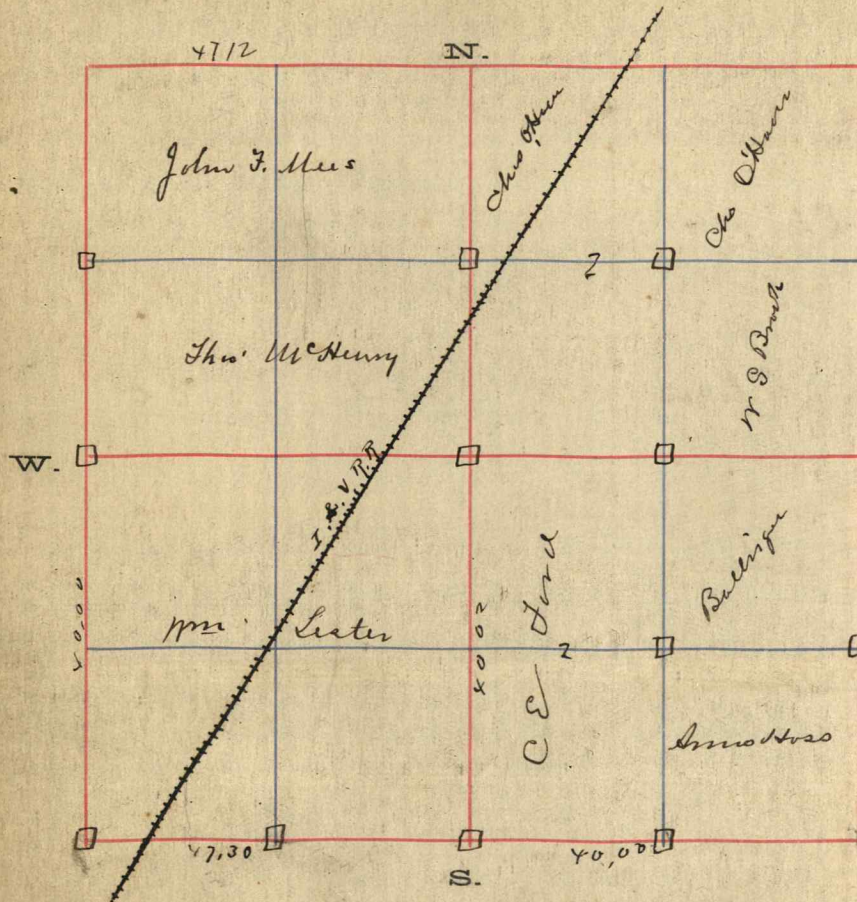 4712
N.
John F. Mees
Chas O'Haver
Chs O'Haver
2
Thos McHenry
W S Brock
W.
I. & V. R.R.
40,00
Wm. Lester
4002
C E Ford
2
Ballinger
Amos Hoss
47,30
40,00
S.